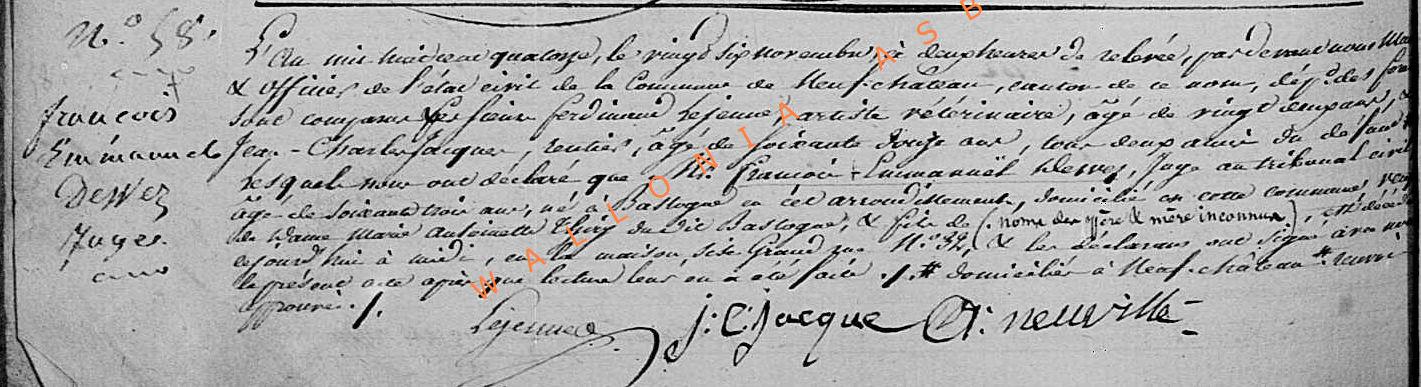 N.° 58.
françois
Emmanuel
Dewez
Juge
L'An mil huit cent quatorze, le vingt six novembre, à deux heures de relevée, par devant nous Maire
& officier de l'état civil de la Commune de Neufchâteau, canton de ce nom, dép.t des forêts
sont comparus les sieurs ferdinand Lejeune, artiste vétérinaire, âgé de vingt deux ans, &
Jean-Charles Jacques, rentier, âgé de soixante douze ans, tous deux du défunt #
lesquels nous ont déclaré que M.r François Emmanuël Dewez, Juge au tribunal civil
âgé de soixante trois ans, né à Bastogne en cet arrondissement, domicilié en cette commune, veuf
de Dame Marie Antoinette Thiry du dit Bastogne, & fils de (noms des père & mère inconnus), est décédé
cejourd'hui à midi, en sa maison, sise Grand rue N.° 32, & les déclarans ont signé avec nous
le présent acte après que lecture leur en a été faite ./. # domiciliés à Neufchâteau # renvoi
approuvé ./.
Lejeune
J: C: Jacque
neuville
WALLONIA ASB